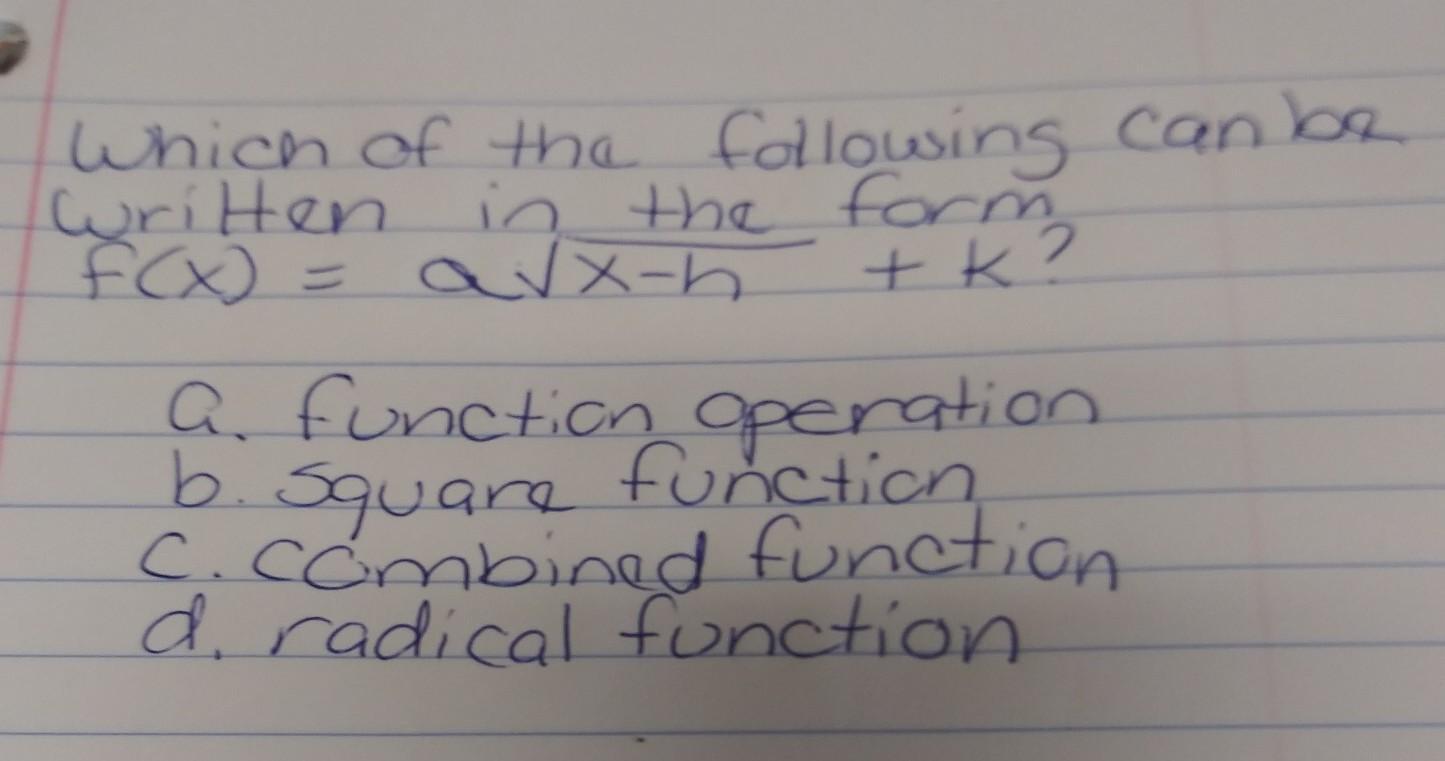 Which of the following can be
written in the form
f(x) = a√x-h + k?
a. function operation
b. square function
c. combined function
d. radical function